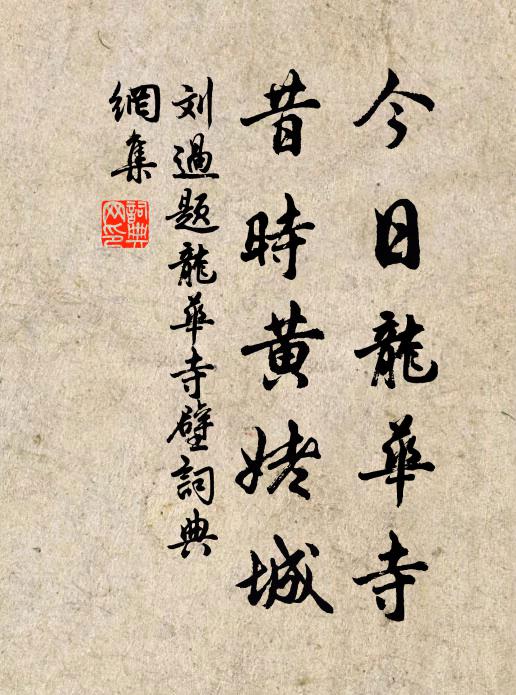 今日龍華寺
昔時黄姥城
刘過题龍華寺壁詞典
網集
詞典
网印